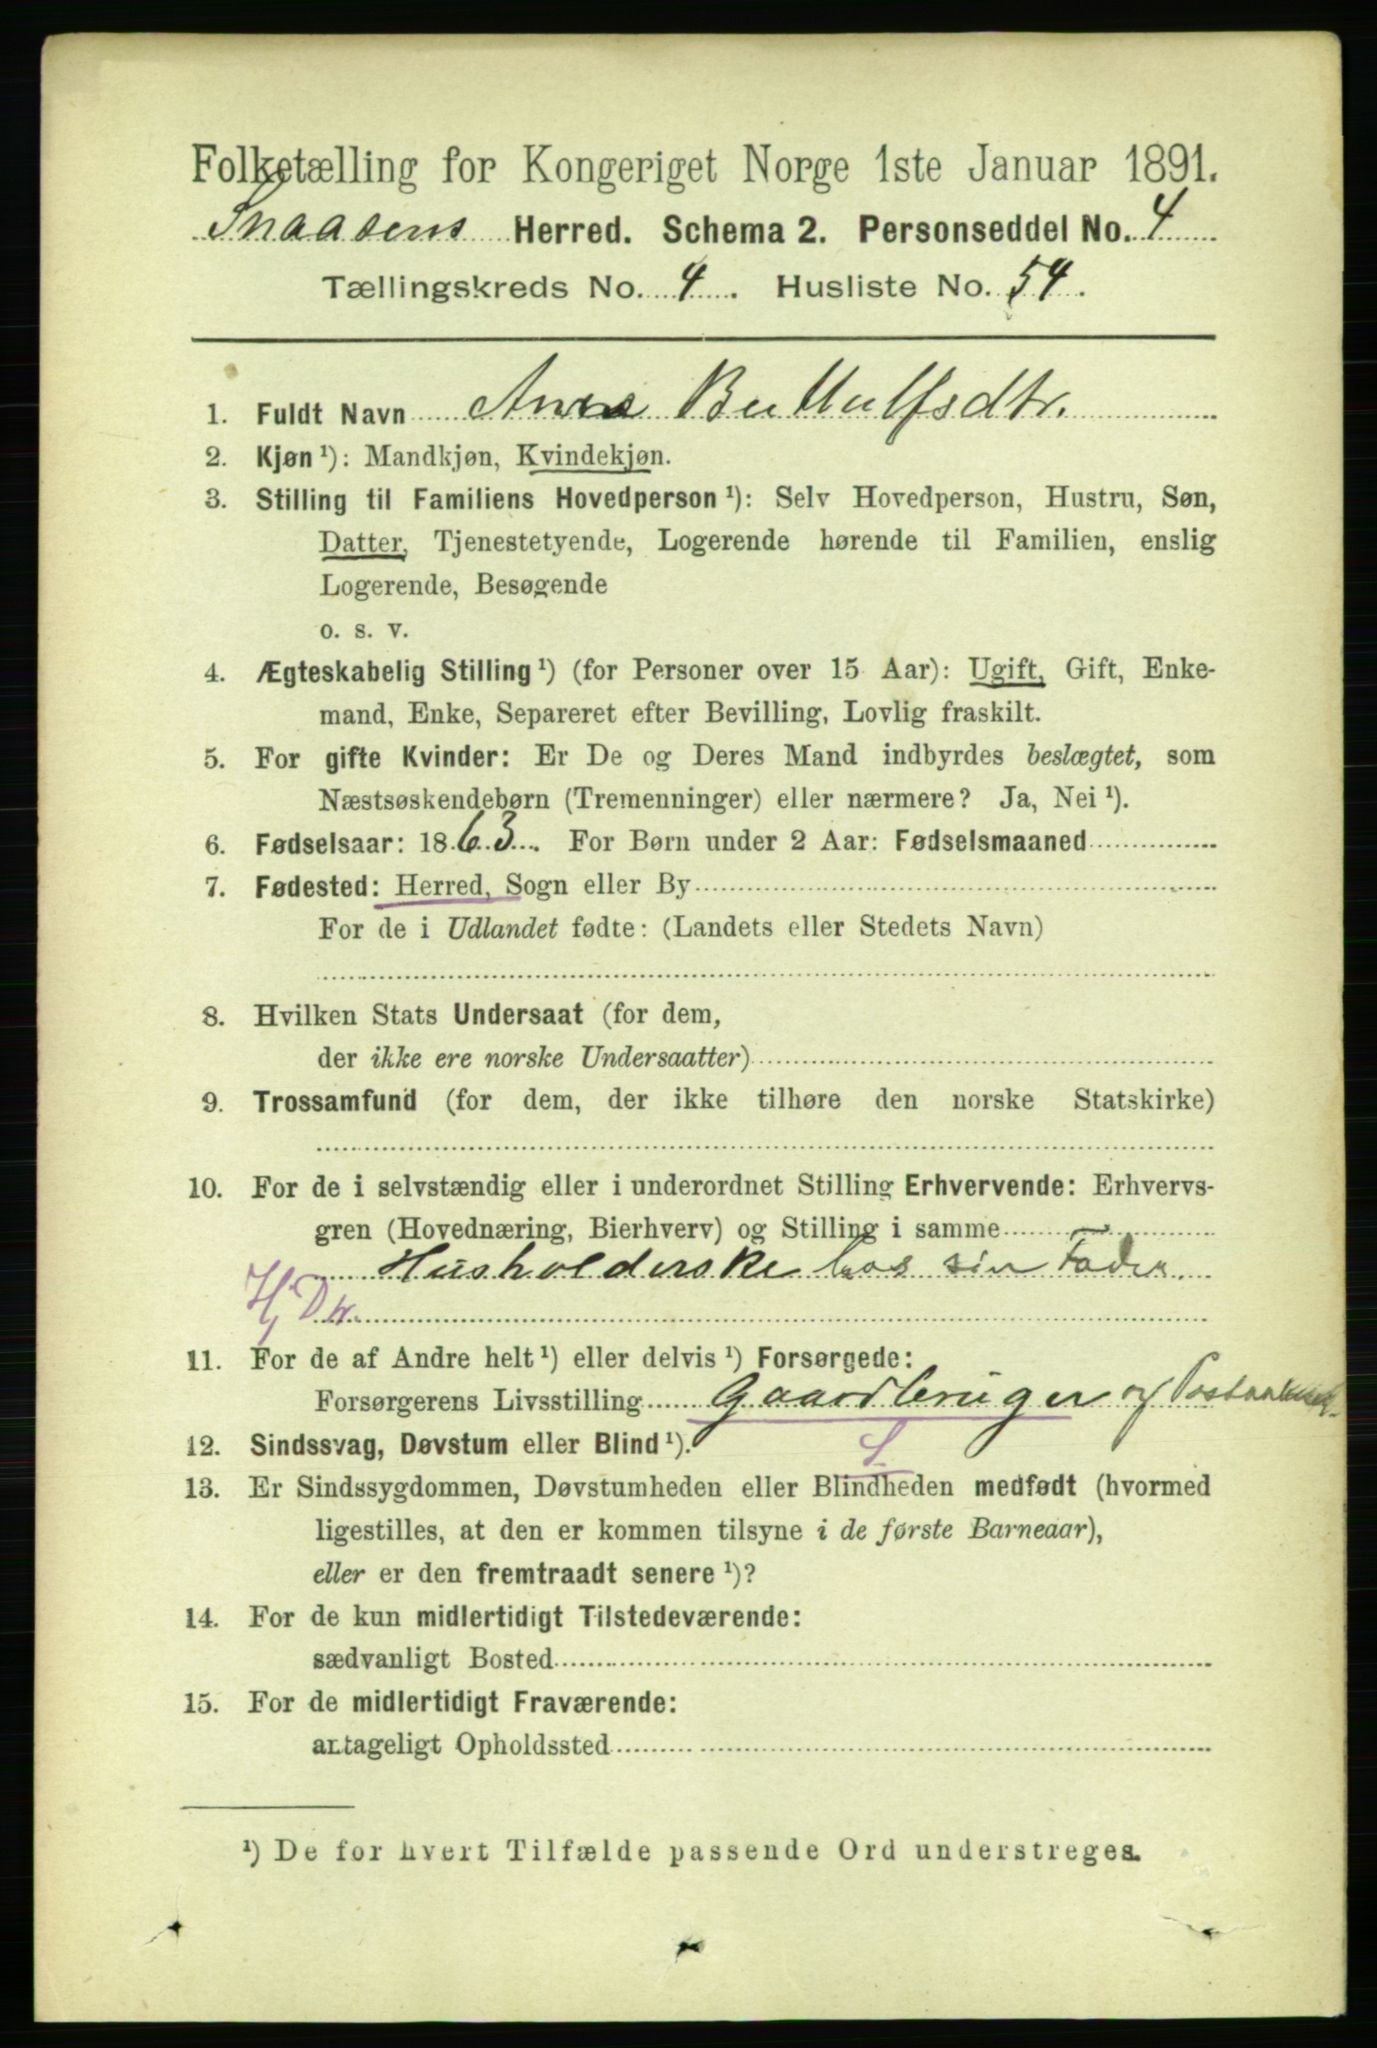 Folketælling for Kongeriget Norge 1ste Januar 1891.
Snaasens Herred. Schema 2. Personseddel No. 4
Tællingskreds No. 4. Husliste No. 54.
1. Fuldt Navn Anna Bu Uulfsdtr.
2. Kjøn ¹): Mandkjøn, Kvindekjøn.
3. Stilling til Familiens Hovedperson ¹): Selv Hovedperson, Hustru, Søn,
Datter, Tjenestetyende, Logerende hørende til Familien, enslig
Logerende, Besøgende
o. s. v.
4. Ægteskabelig Stilling ¹) (for Personer over 15 Aar): Ugift, Gift, Enke-
mand, Enke, Separeret efter Bevilling, Lovlig fraskilt.
5. For gifte Kvinder: Er De og Deres Mand indbyrdes beslægtet, som
Næstsøskendebørn (Tremenninger) eller nærmere? Ja, Nei ¹).
6. Fødselsaar: 1863. For Børn under 2 Aar: Fødselsmaaned
7. Fødested: Herred, Sogn eller By
For de i Udlandet fødte: (Landets eller Stedets Navn)
8. Hvilken Stats Undersaat (for dem,
der ikke ere norske Undersaatter)
9. Trossamfund (for dem, der ikke tilhøre den norske Statskirke)
10. For de i selvstændig eller i underordnet Stilling Erhvervende: Erhvervs-
gren (Hovednæring, Bierhverv) og Stilling i samme
Husholderske hos sin Fader.
11. For de af Andre helt ¹) eller delvis ¹) Forsørgede:
Forsørgerens Livsstilling Gaardbruger og
12. Sindssvag, Døvstum eller Blind ¹). S
13. Er Sindssygdommen, Døvstumheden eller Blindheden medfødt (hvormed
ligestilles, at den er kommen tilsyne i de første Barneaar),
eller er den fremtraadt senere ¹)?
14. For de kun midlertidigt Tilstedeværende:
sædvanligt Bosted
15. For de midlertidigt Fraværende:
antageligt Opholdssted
¹) De for hvert Tilfælde passende Ord understreges.